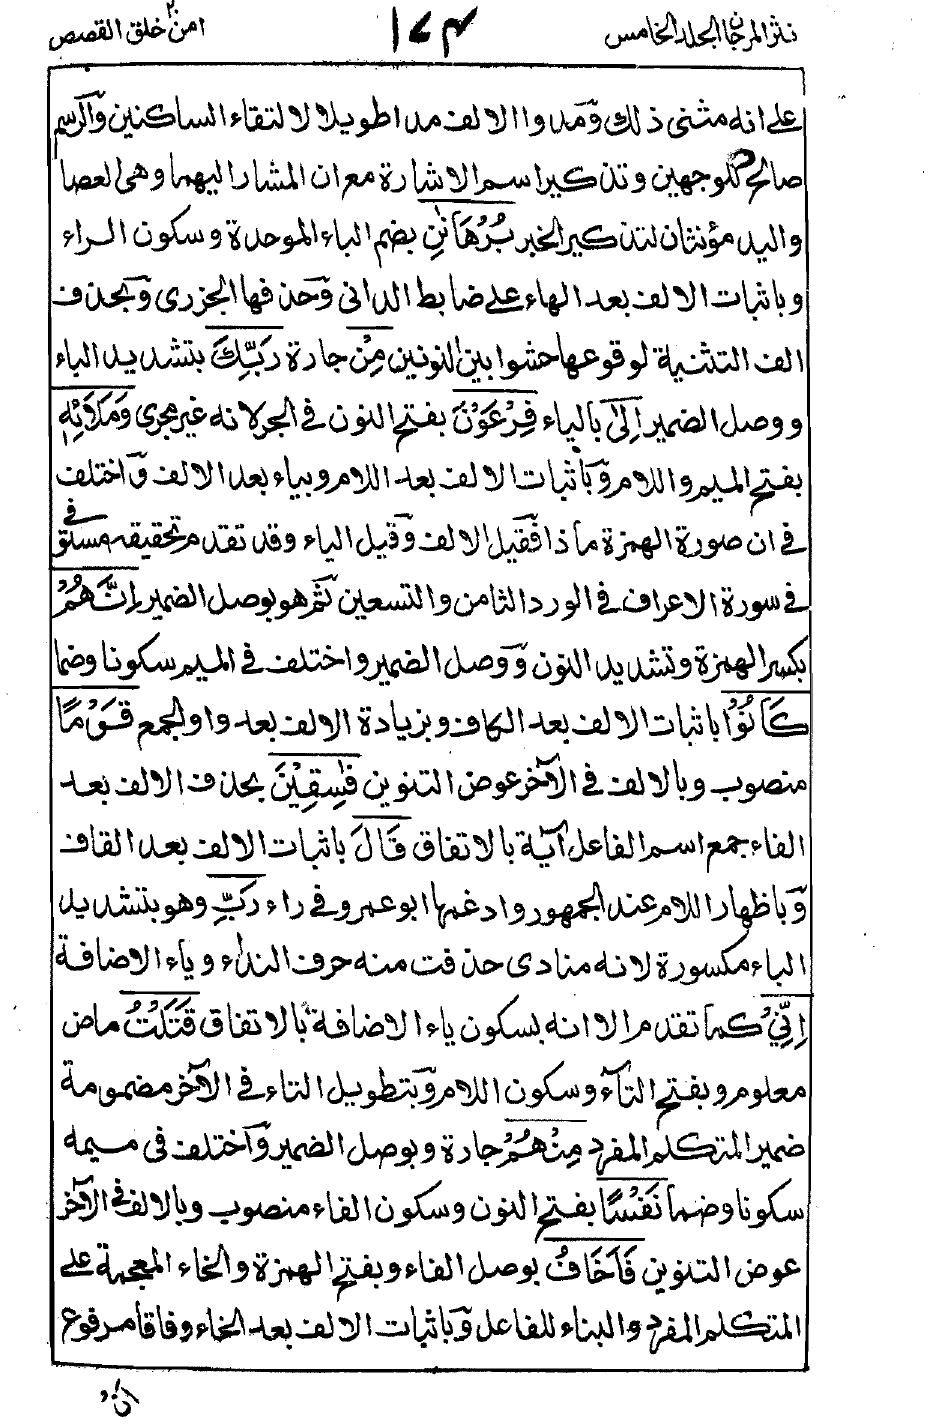 نثر المرجان المجلد الخامس ١٧٤ امن ٢٠ خلق القصص
على انه مثنى ذلك ومدوا الالف مدا طويلا لالتقاء الساكنين والرسم
صالح للوجهين وتذكير اسم الاشارة مع ان المشار اليهما وهى العصا
واليد مؤنثان لتذكير الخبر بُرْهَانٰنِ بضم الباء الموحدة وسكون الراء
وباثبات الالف بعد الهاء على ضابط الدانى وحذفها الجزرى وبحذف
الف التثنية لوقوعها حشوا بين النونين مِنْ جارة رَبِّكَ بتشديد الباء
ووصل الضمير اِلىٰ بالياء فِرْعَوْنَ بفتح النون فى الجر لانه غير مجرى وَمَلَائِهٖ
بفتح الميم واللام وباثبات الالف بعد اللام وبياء بعد الالف واختلف
فى ان صورة الهمزة ماذا فقيل الالف وقيل الياء وقد تقدم تحقيقه مستوفى
فى سورة الاعراف فى الورد الثامن والتسعين ثم هو بوصل الضمير اِنَّهُمْ
بكسر الهمزة وتشديد النون ووصل الضمير واختلف فى الميم سكونا وضما
كَانُوْا باثبات الالف بعد الكاف وبزيادة الالف بعد واو الجمع قَوْمًا
منصوب وبالالف فى الآخر عوض التنوين فٰسِقِيْنَ بحذف الالف بعد
الفاء جمع اسم الفاعل آية بالاتفاق قَالَ باثبات الالف بعد القاف
وباظهار اللام عند الجمهور وادغمها ابو عمرو فى راء رَبِّ وهو بتشديد
الباء مكسورة لانه منادى حذفت منه حرف النداء وياء الاضافة
اِنِّيْ كما تقدم الا انه بسكون ياء الاضافة بالاتفاق قَتَلْتُ ماض
معلوم وبفتح التاء وسكون اللام وبتطويل التاء فى الآخر مضمومة
ضمير المتكلم المفرد مِنْهُمْ جارة وبوصل الضمير واختلف فى ميمه
سكونا وضما نَفْسًا بفتح النون وسكون الفاء منصوب وبالالف فى الآخر
عوض التنوين فَاَخَافُ بوصل الفاء وبفتح الهمزة والخاء المعجمة على
المتكلم المفرد والبناء للفاعل وباثبات الالف بعد الخاء وفاقا مرفوع
ان